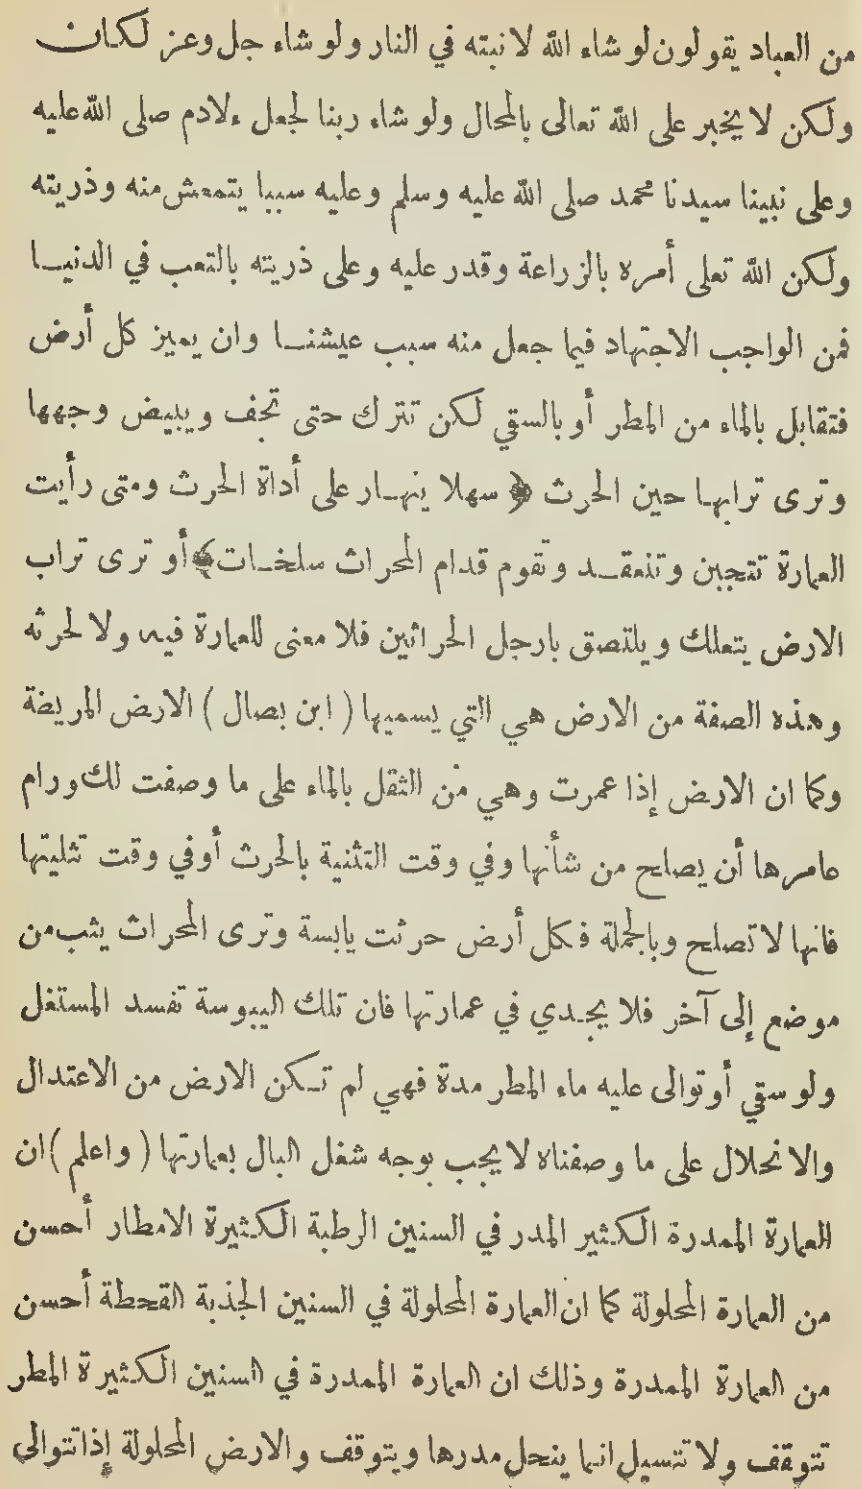 من العباد يقولون لو شاء الله لانبته في النار ولو شاء جل وعز لكان
ولكن لا يخبر على الله تعالى بالمحال ولو شاء ربنا لجعل ءلادم صلى الله عليه
وعلى نبينا سيدنا محمد صلى الله عليه وسلم وعليه سببا يتمعش منه وذريته
ولكن الله تعلى أمره بالزراعة وقدر عليه وعلى ذريته بالتعب في الدنيا
فمن الواجب الاجتهاد فيما جعل منه سبب عيشنا وان يميز كل أرض
فتقابل بالماء من المطر أو بالسقي لكن تترك حتى تجف ويبيض وجهها
وترى ترابها حين الحرث ﴿ سهلا ينهار على أداة الحرث ومتى رأيت
العمارة تتجبن وتنعقد وتقوم قدام المحراث سلخات﴾ أو ترى تراب
الارض يتعلك ويلتصق بارجل الحراثين فلا معنى للعمارة فيه ولا لحرثه
وهذه الصفة من الارض هي التي يسميها ( ابن بصال ) الارض المريضة
وكما ان الارض إذا عمرت وهي من الثقل بالماء على ما وصفت لك ورام
عامرها أن يصلح من شأنها وفي وقت التثنية بالحرث أوفي وقت تثليتها
فانها لا تصلح وبالجملة فكل أرض حرثت يابسة وترى المحراث يثب من
موضع إلى آخر فلا يجدي في عمارتها فان تلك اليبوسة تفسد المستغل
ولو سقي أو توالى عليه ماء المطر مدة فهي لم تكن الارض من الاعتدال
والانحلال على ما وصفناه لا يجب بوجه شغل البال بعمارتها ( واعلم ) ان
العمارة الممدرة الكثير المدر في السنين الرطبة الكثيرة الامطار أحسن
من العمارة المحلولة كما ان العمارة المحلولة في السنين الجذبة القحطة أحسن
من العمارة الممدرة وذلك ان العمارة الممدرة في السنين الكثيرة المطر
تتوقف ولا تتسيل انما ينحل مدرها ويتوقف والارض المحلولة إذا تتوالى